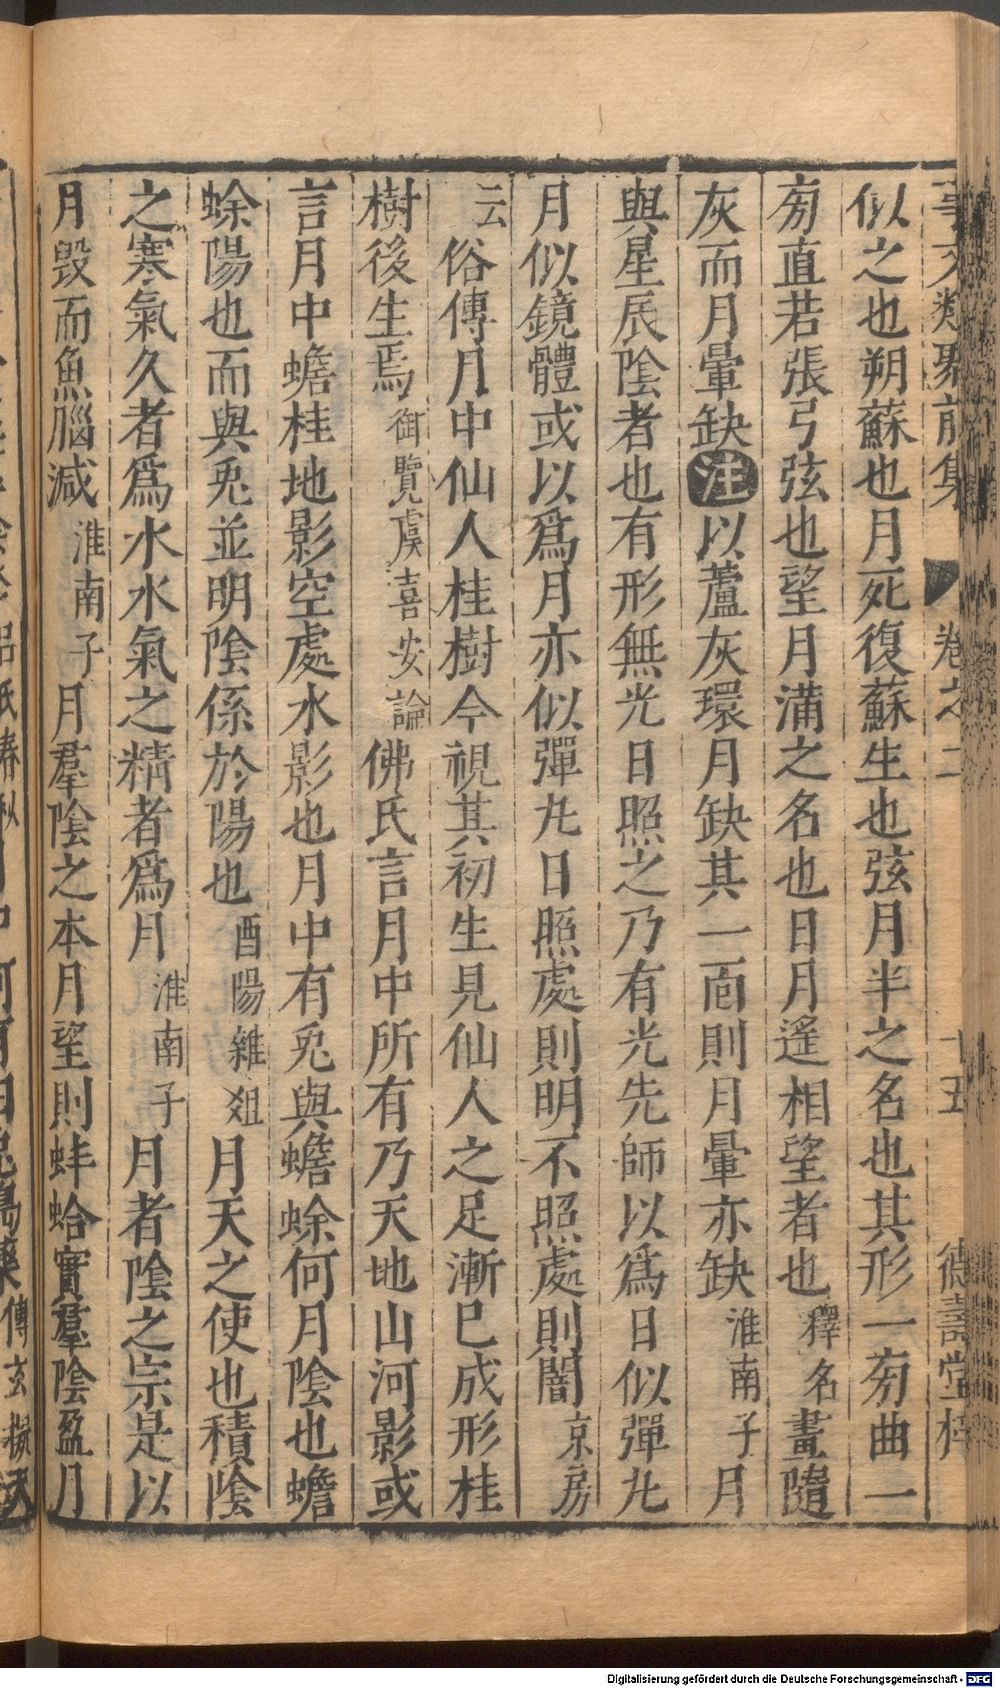 事文類聚前集 卷之二 十五 德壽堂梓
似之也朔蘇也月死復蘇生也弦月半之名也其形一旁曲一
旁直若張弓弦也望月滿之名也日月遙相望者也釋名畫隨
灰而月暈缺注以蘆灰環月缺其一面則月暈亦缺淮南子月
與星辰陰者也有形無光日照之乃有光先師以爲日似彈丸
月似鏡體或以爲月亦似彈丸日照處則明不照處則闇京房
云俗傳月中仙人桂樹今視其初生見仙人之足漸已成形桂
樹後生焉御覽虞喜安論佛氏言月中所有乃天地山河影或
言月中蟾桂地影空處水影也月中有兎與蟾蜍何月陰也蟾
蜍陽也而與兎並明陰係於陽也酉陽雜俎月天之使也積陰
之寒氣久者爲水水氣之精者爲月淮南子月者陰之宗是以
月毀而魚腦減淮南子月羣陰之本月望則蚌蛤實羣陰盈月
呂氏春秋 月中何有白兎搗藥傳玄擬天
Digitalisierung gefördert durch die Deutsche Forschungsgemeinschaft - DFG